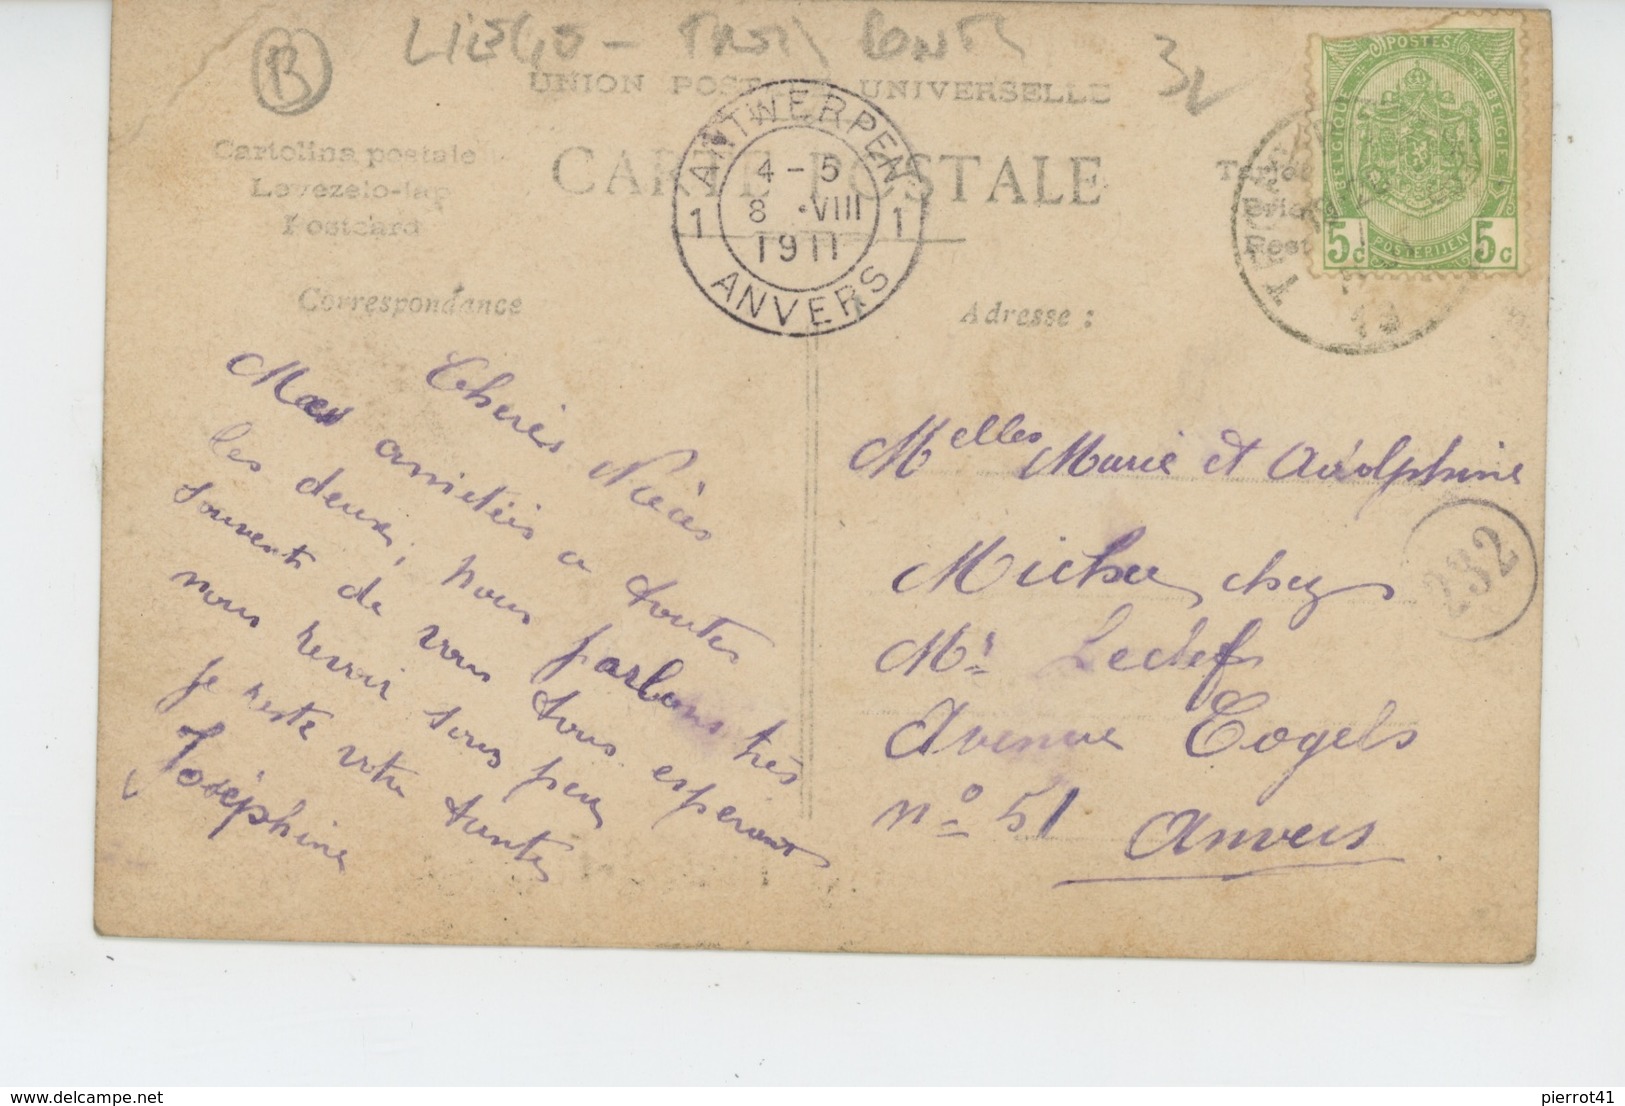 B
LIEGE - TROIS PONTS
UNION POSTALE UNIVERSELLE
3
Cartolina postale
Levezelo-lap
Postcard
CARTE POSTALE
ANTWERPEN
4-5
8 • VIII
1911
1 1
ANVERS
POSTES
BELGIQUE BELGIE
5c POSTERIJEN 5c
Correspondance
Adresse :
Cherès Nièces
Mes amitiés a toutes
les deux, nous parlons très
souvent de vous tous esperant
nous revoir sous peu
je reste votre tante
Joséphine
Melles Marie et Adolphine
chez
Mr
Avenue Cogels
no 51
Anvers
232
pierrot41